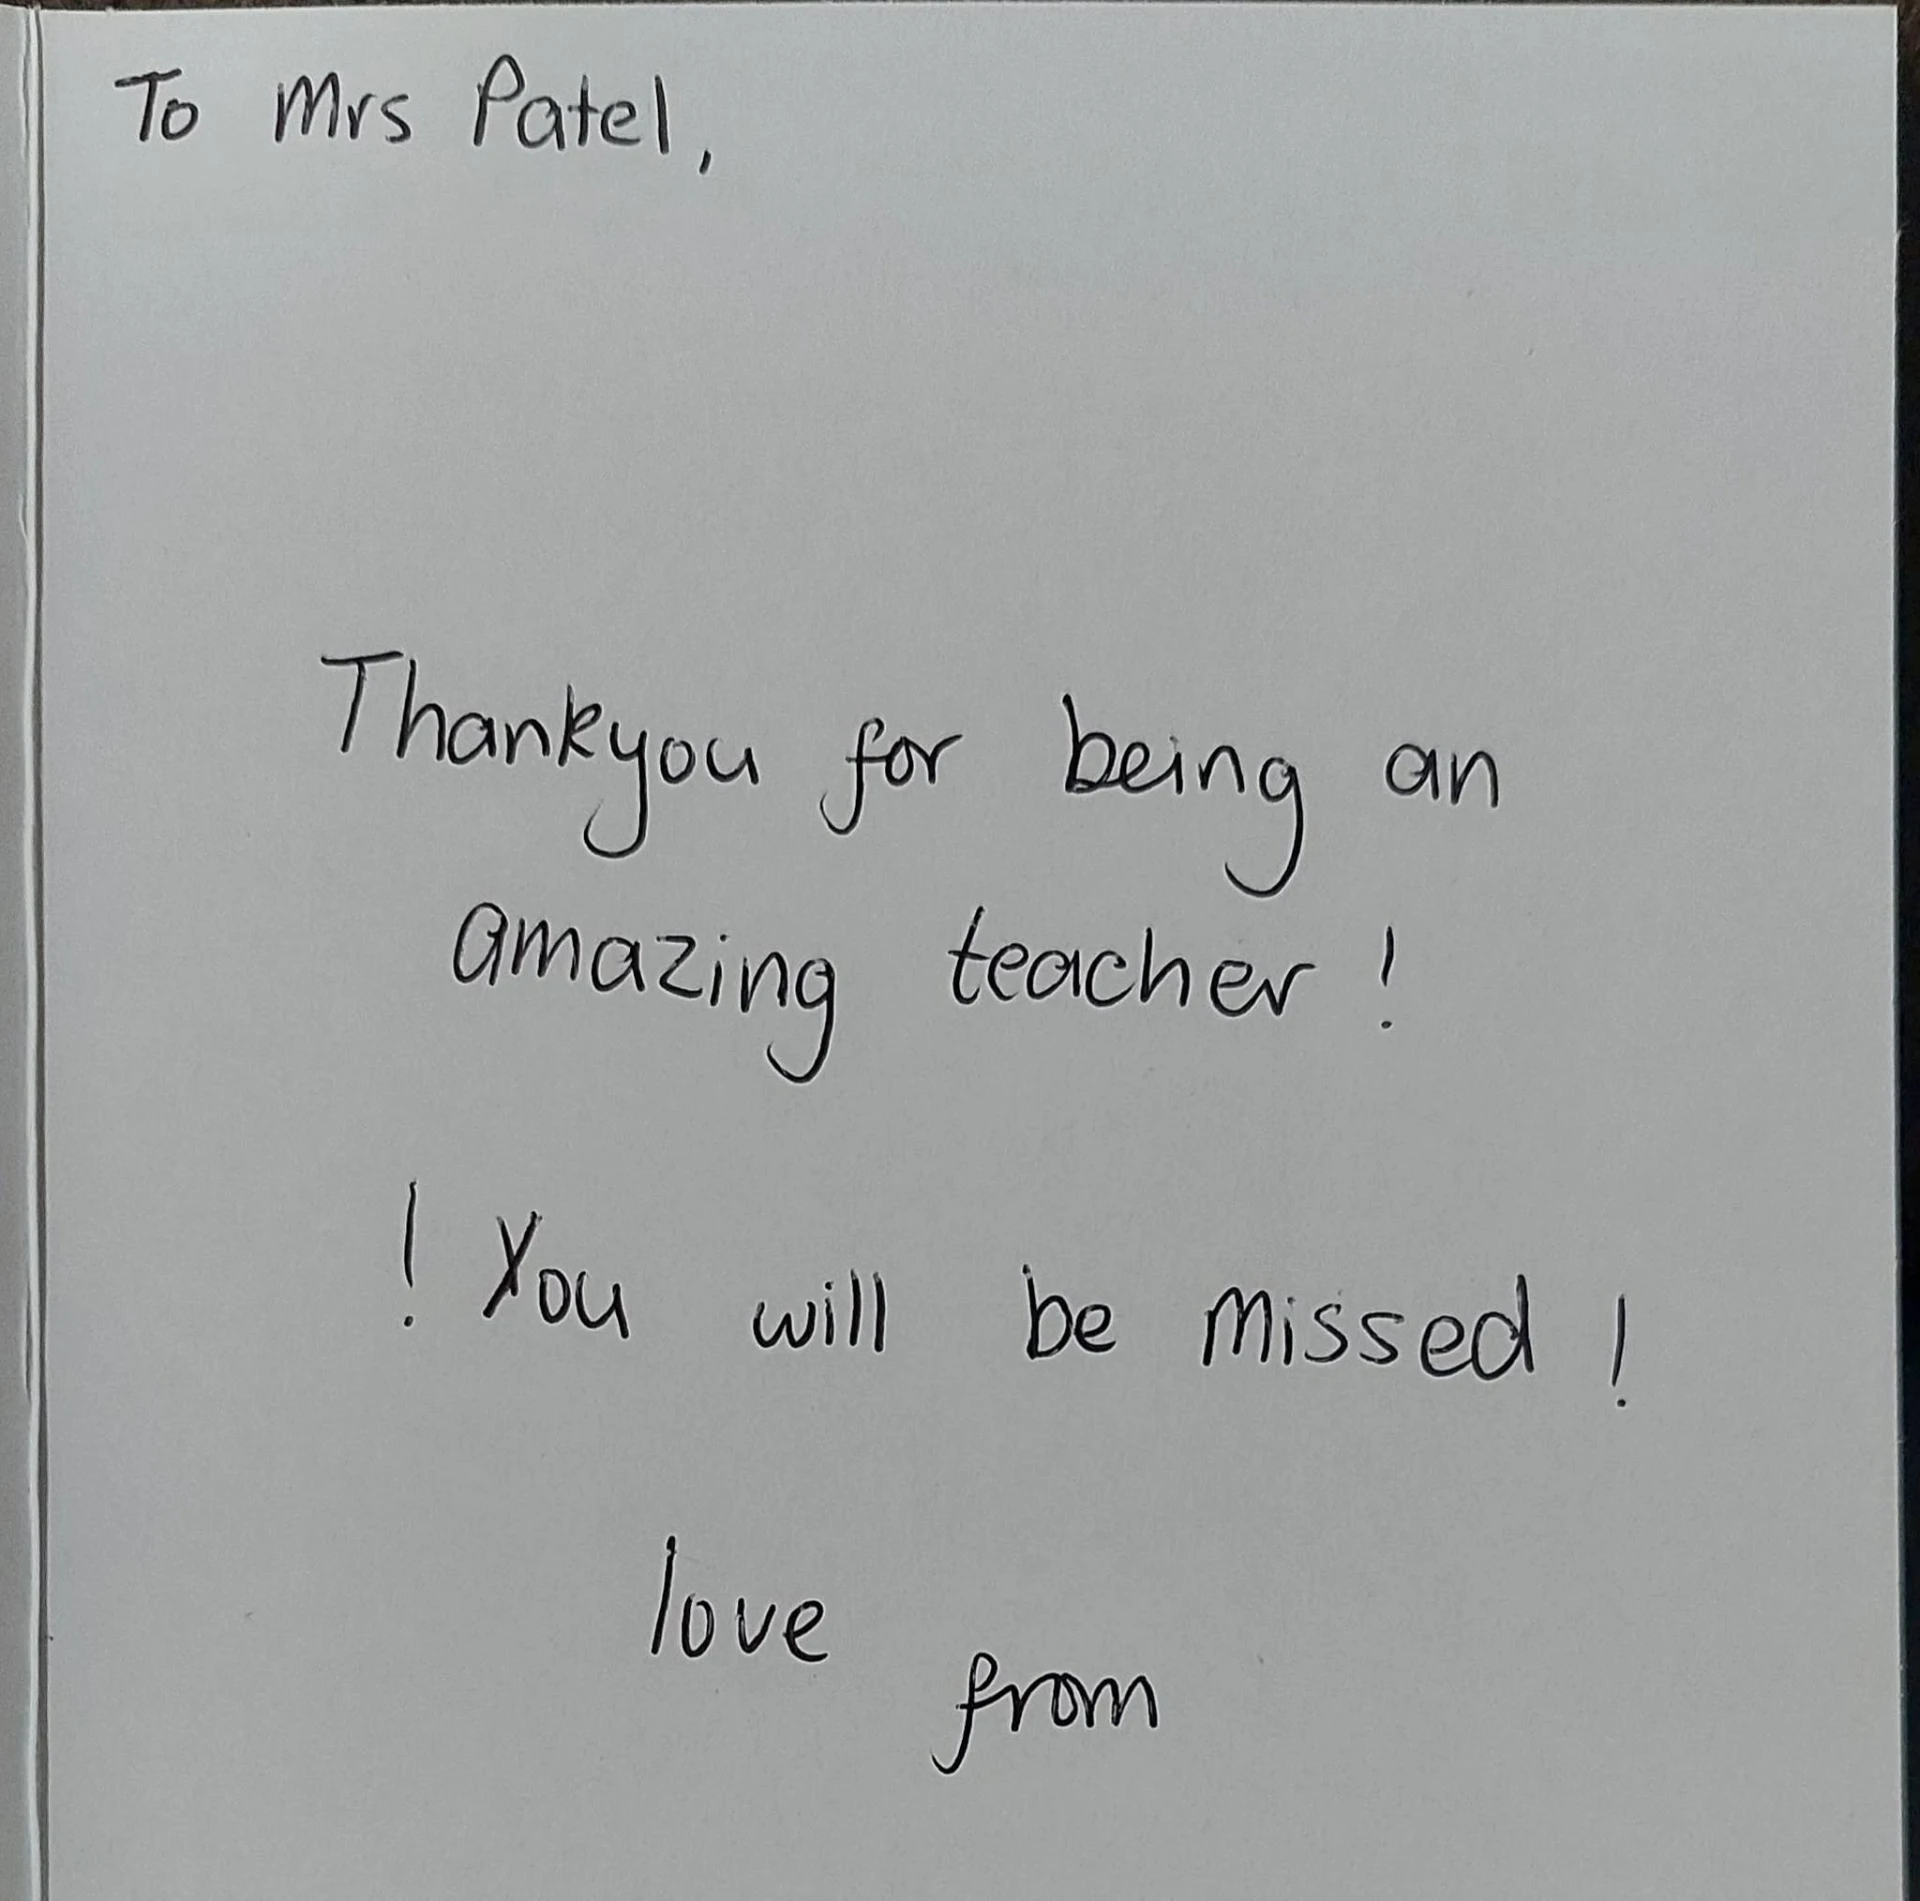 To Mrs Patel,
Thankyou for being an
amazing teacher!
! You will be missed !
love from